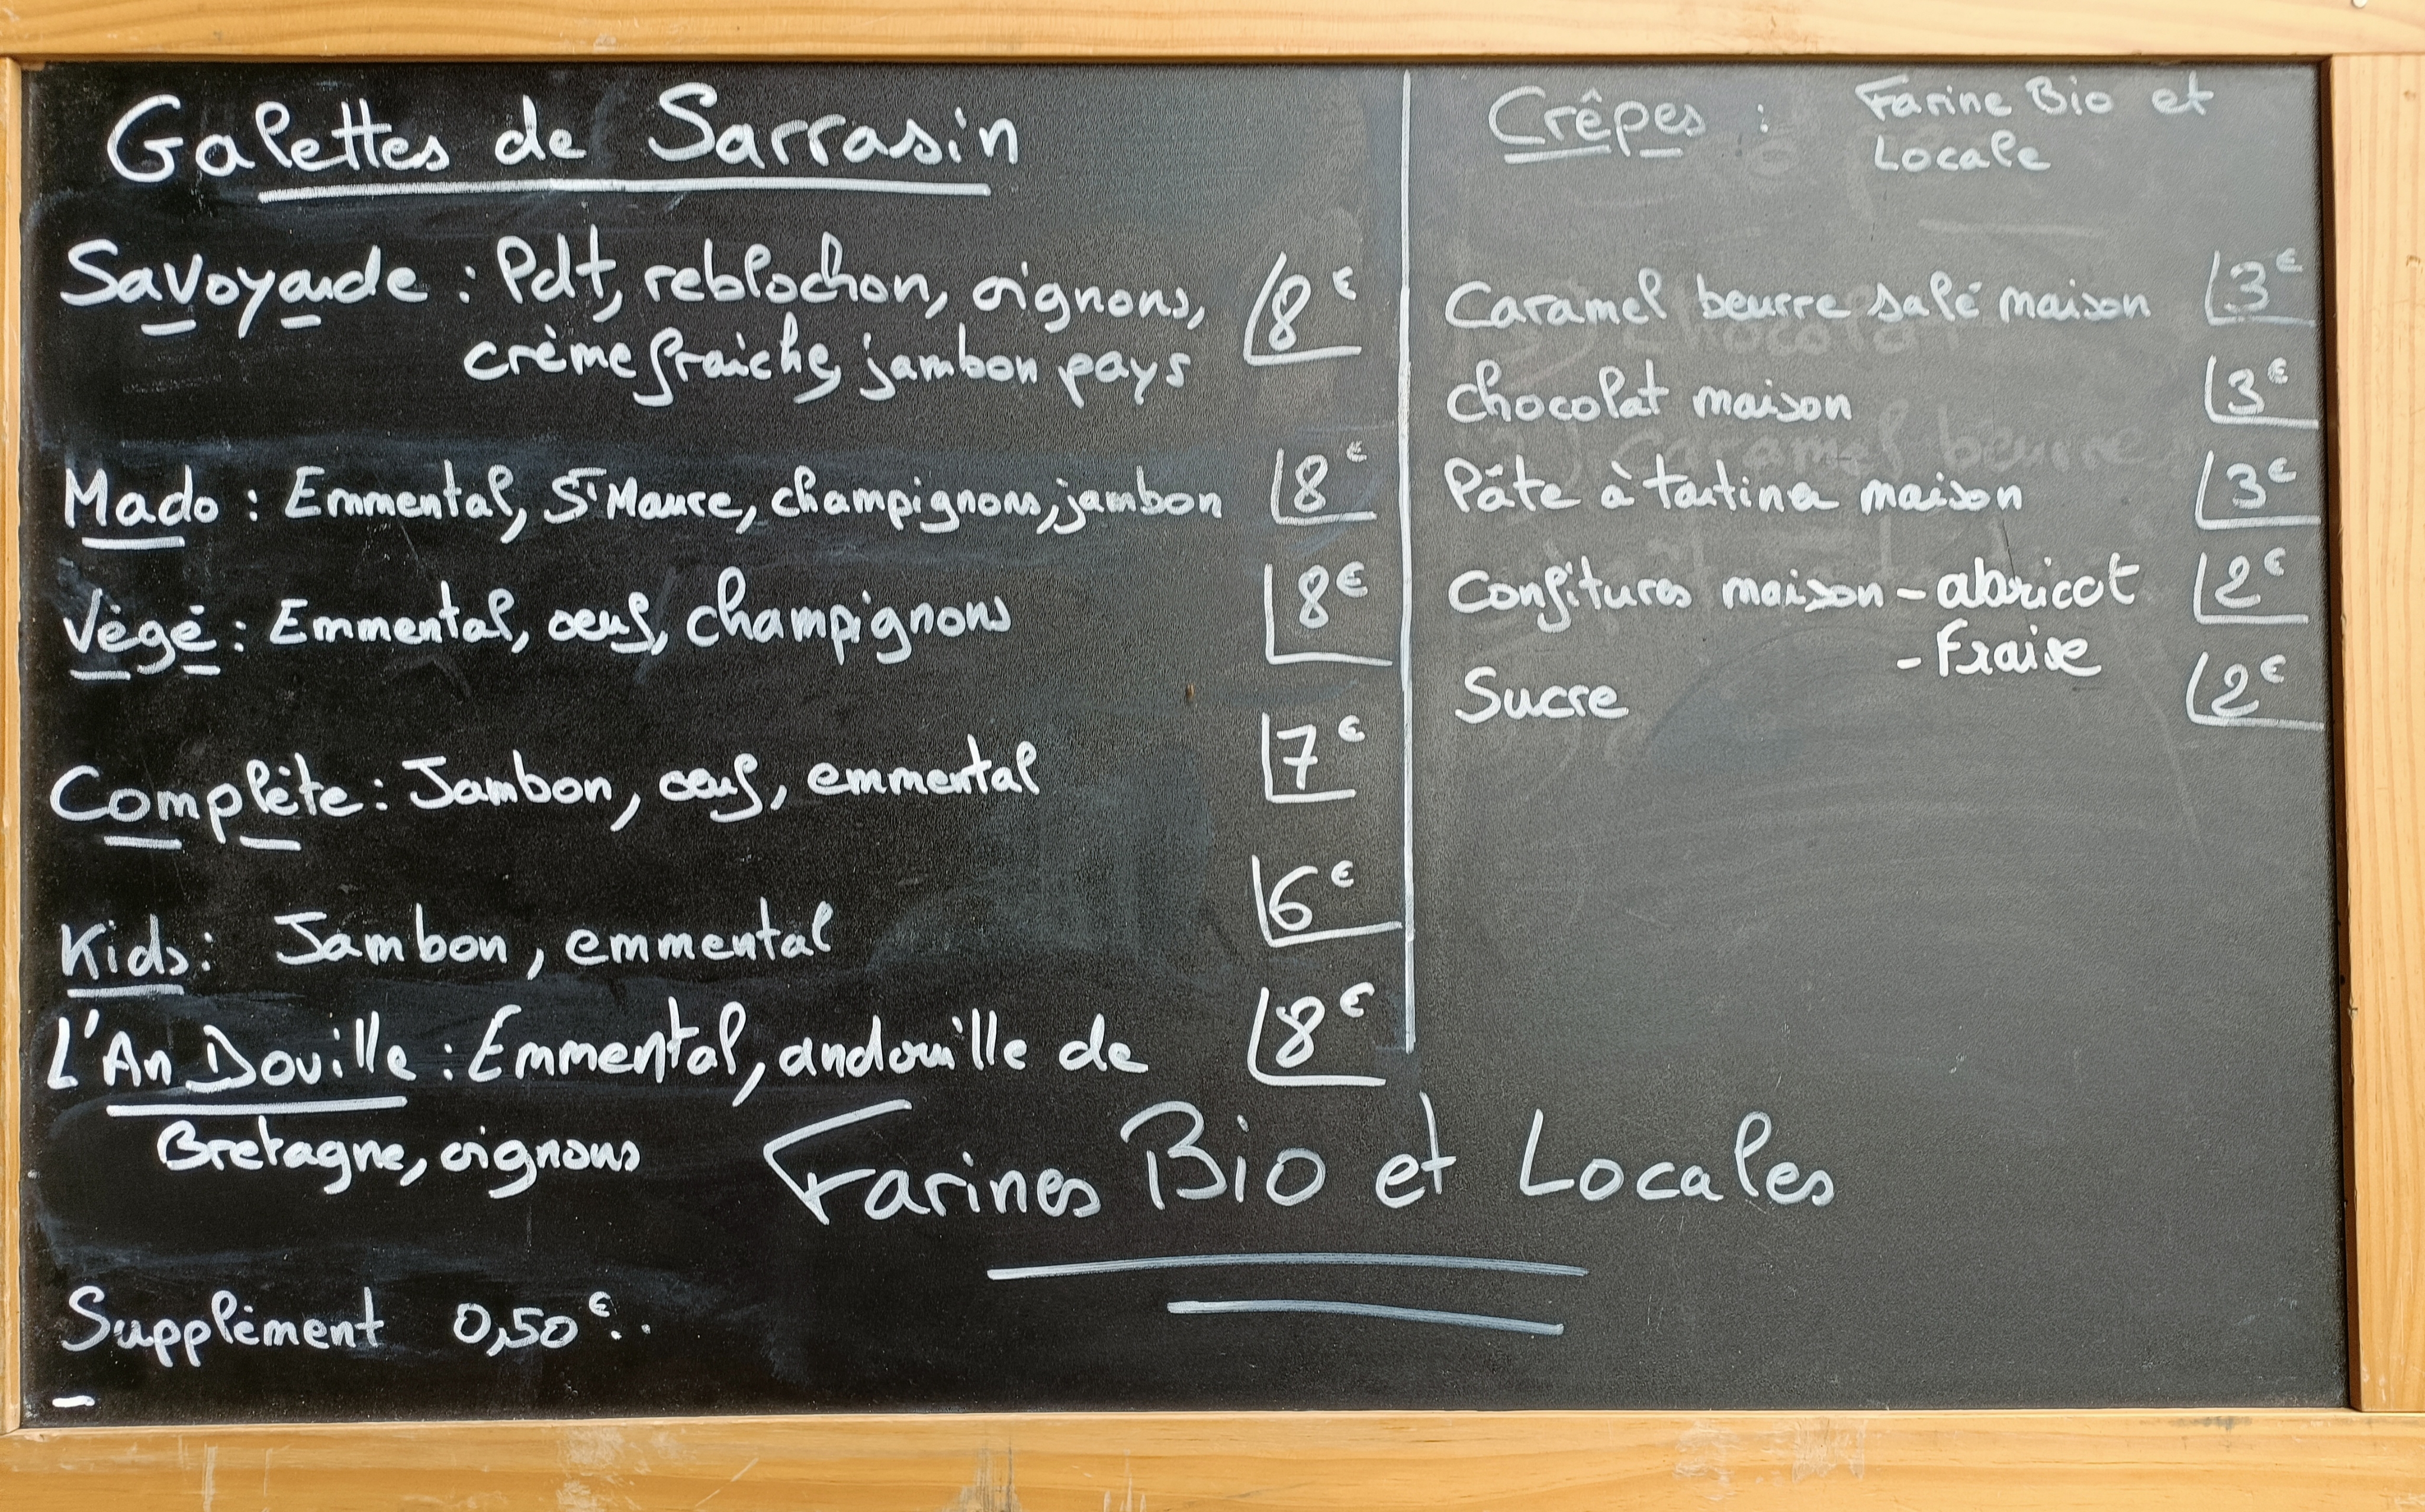 Galettes de Sarrasin
Savoyarde : Pdt, reblochon, oignons, 8€
crème fraiche, jambon pays
Mado : Emmental, St Maure, champignons, jambon 8€
Végé : Emmental, oeuf, champignons 8€
Complète : Jambon, oeuf, emmental 7€
Kids : Jambon, emmental 6€
L'An Douille : Emmental, andouille de 8€
Bretagne, oignons
Supplément 0,50€..
Crêpes : Farine Bio et
Locale
Caramel beurre salé maison 3€
chocolat maison 3€
Pâte à tartiner maison 3€
Confitures maison - abricot 2€
- Fraise
Sucre 2€
Farines Bio et Locales